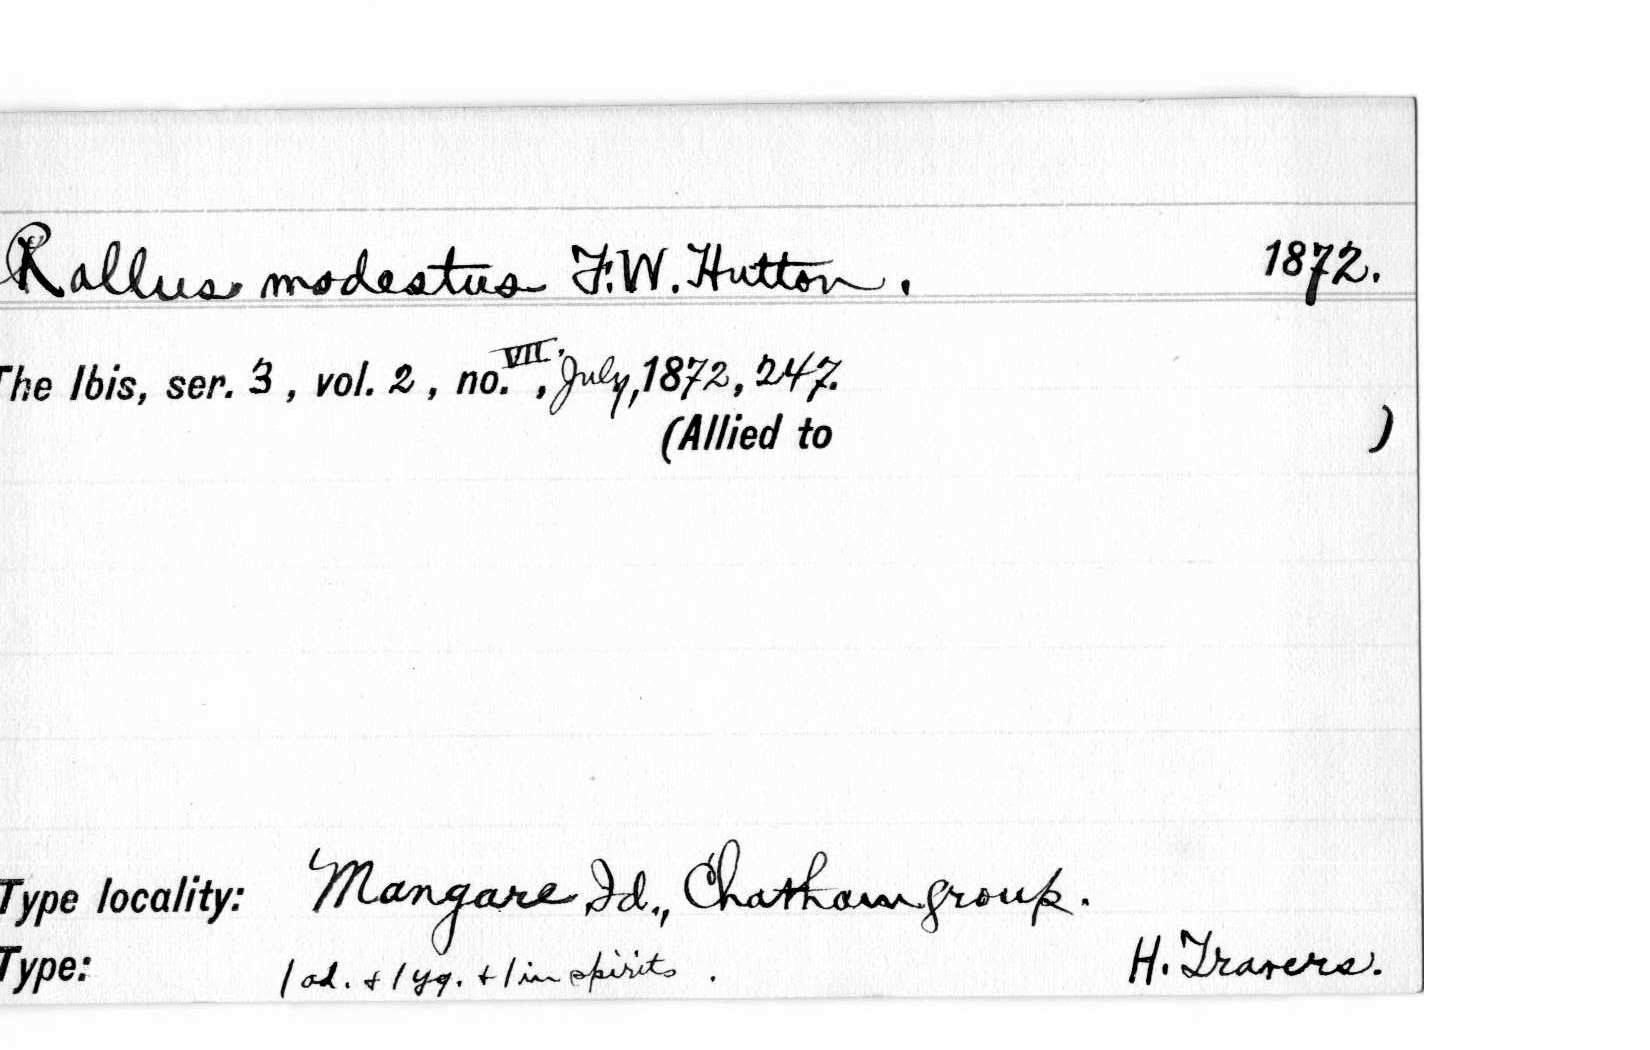 Rallus modestus F.W. Hutton. 1872.
The Ibis, ser. 3, vol. 2, no. VII., July, 1872, 247.
(Allied to )
Type locality: Mangare Id., Chatham group.
Type: 1 ad. + 1 yg. + 1 in spirits. H. Travers.